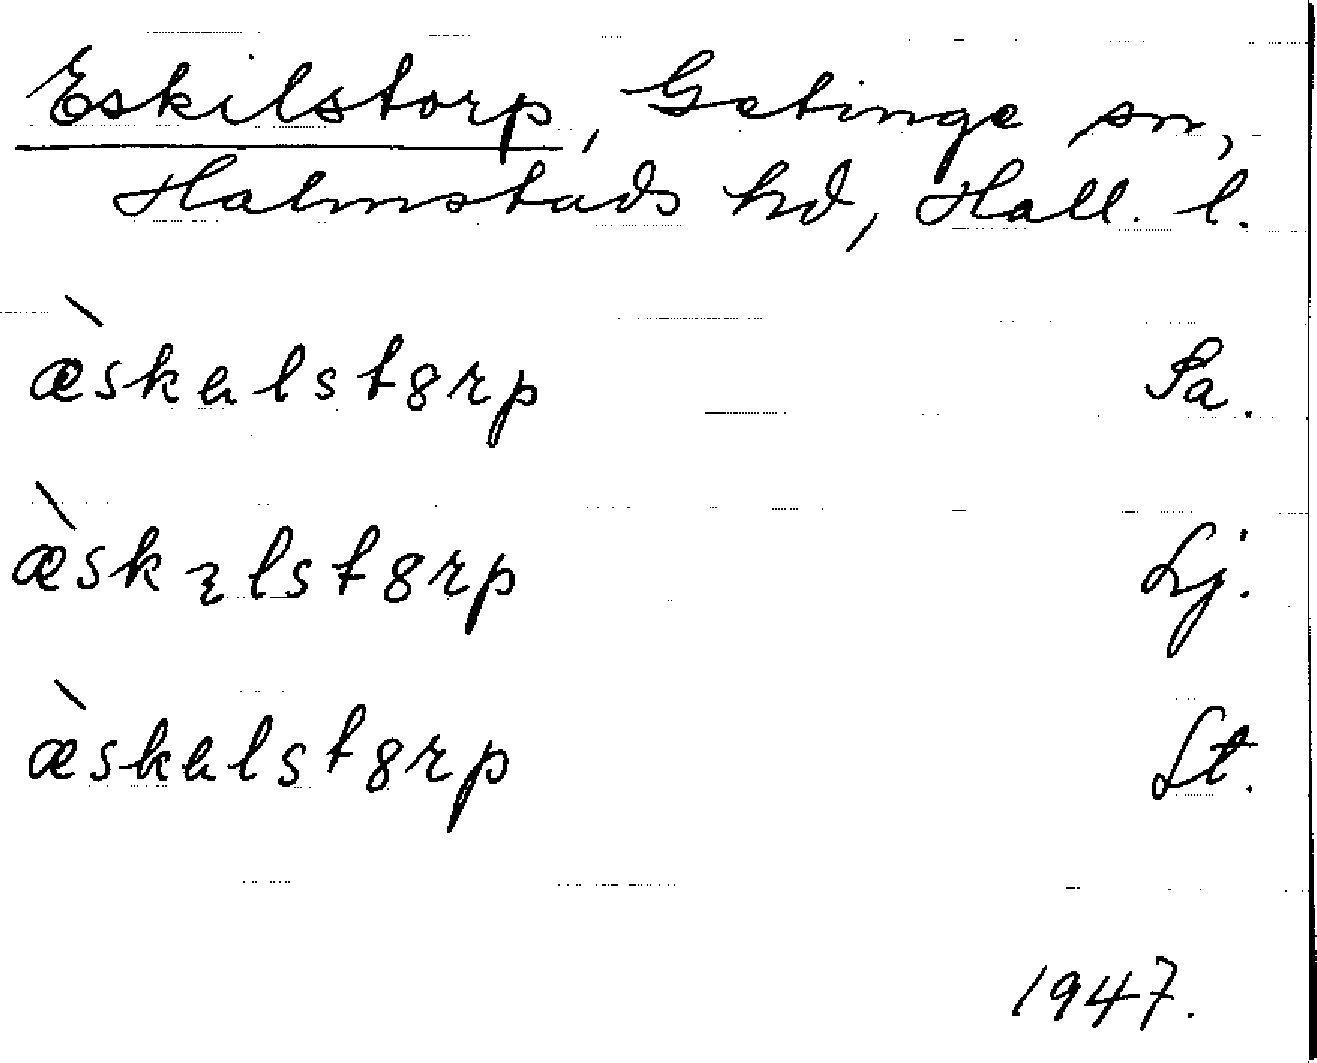 Eskilstorp, Getinge sn,
Halmstads hd, Hall. l.
æ̀skɐlst8rp Sa.
æ̀skꝛlst8rp Lj.
æ̀skɐlst8rp St.
1947.